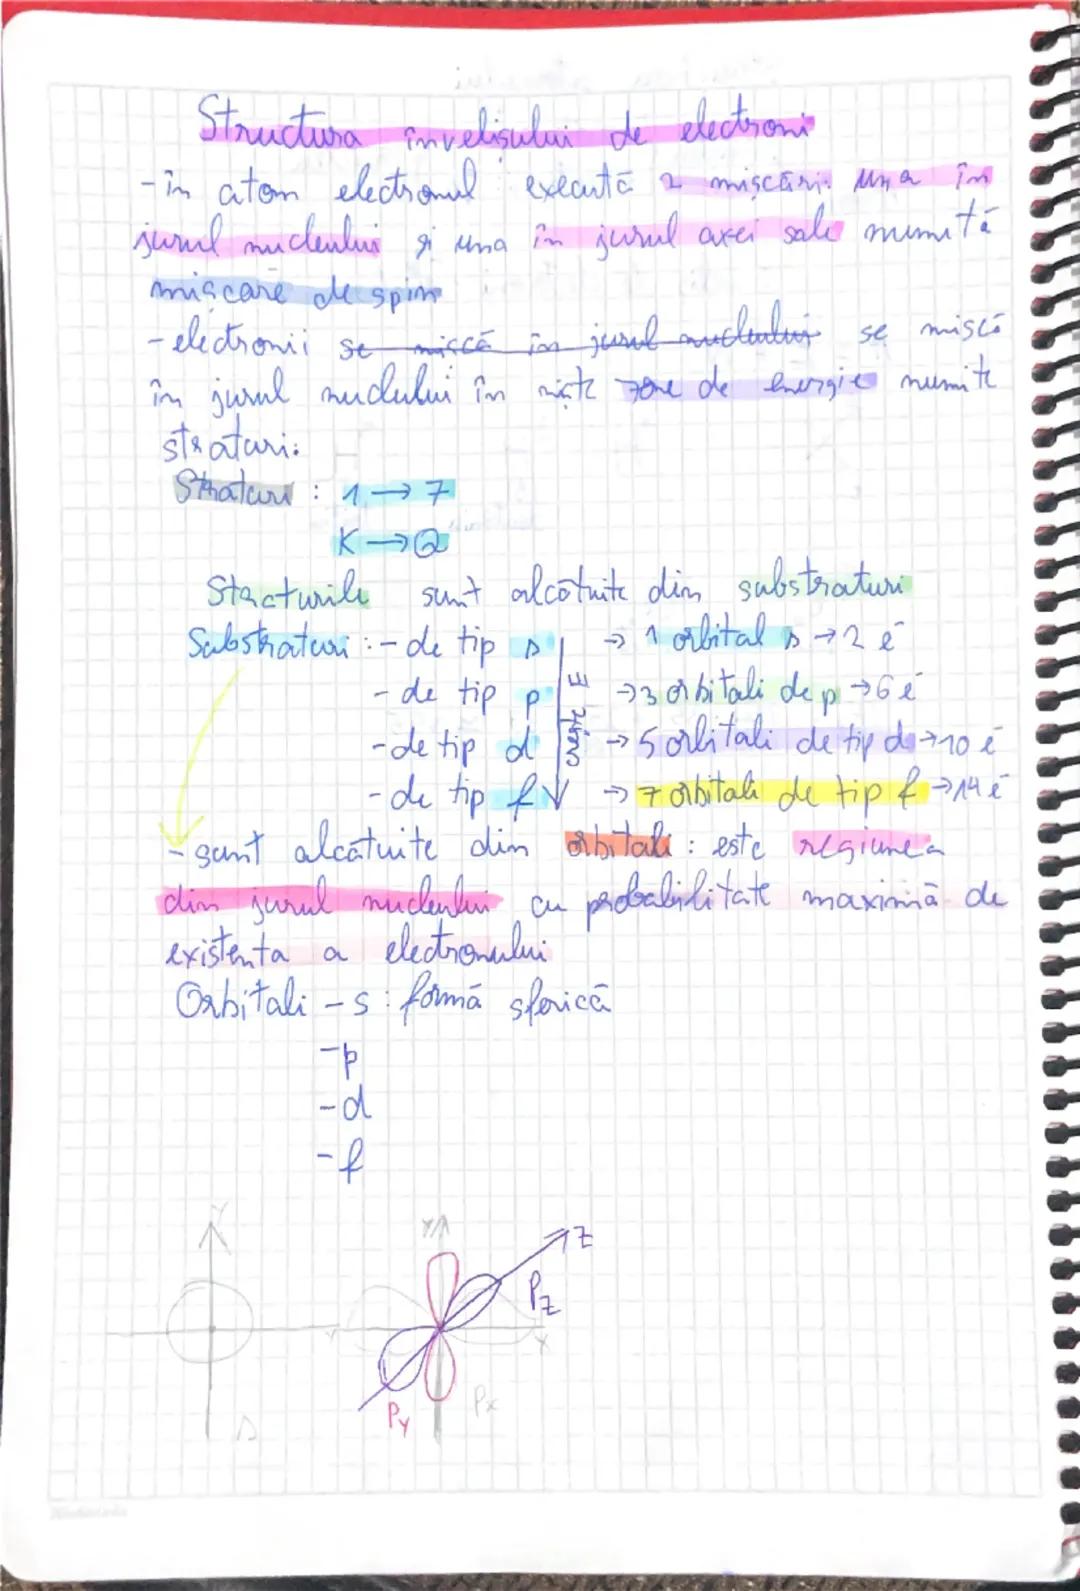 Structura învelișului de electroni
- în atom electronul execută 2 mișcări. Una în
jurul nucleului și una în jurul axei sale numită
mișcare de spin
- electronii se mișcă în jurul nucleului se mișcă
în jurul nucleului în niște zone de energie numite
straturi:
Straturi : 1 → 7
K → Q
Straturile sunt alcătuite din substraturi
Substraturi : - de tip s → 1 orbital s → 2 e⁻
- de tip p → 3 orbitali de p → 6 e⁻
crește E
- de tip d → 5 orbitali de tip d → 10 e⁻
- de tip f → 7 orbitali de tip f → 14 e⁻
- sunt alcătuite din orbitali : este regiunea
din jurul nucleului cu probabilitate maximă de
existenta a electronului
Orbitali - s : formă sferică
- p
- d
- f
Y Y Z
Pz
X
Py Px
s